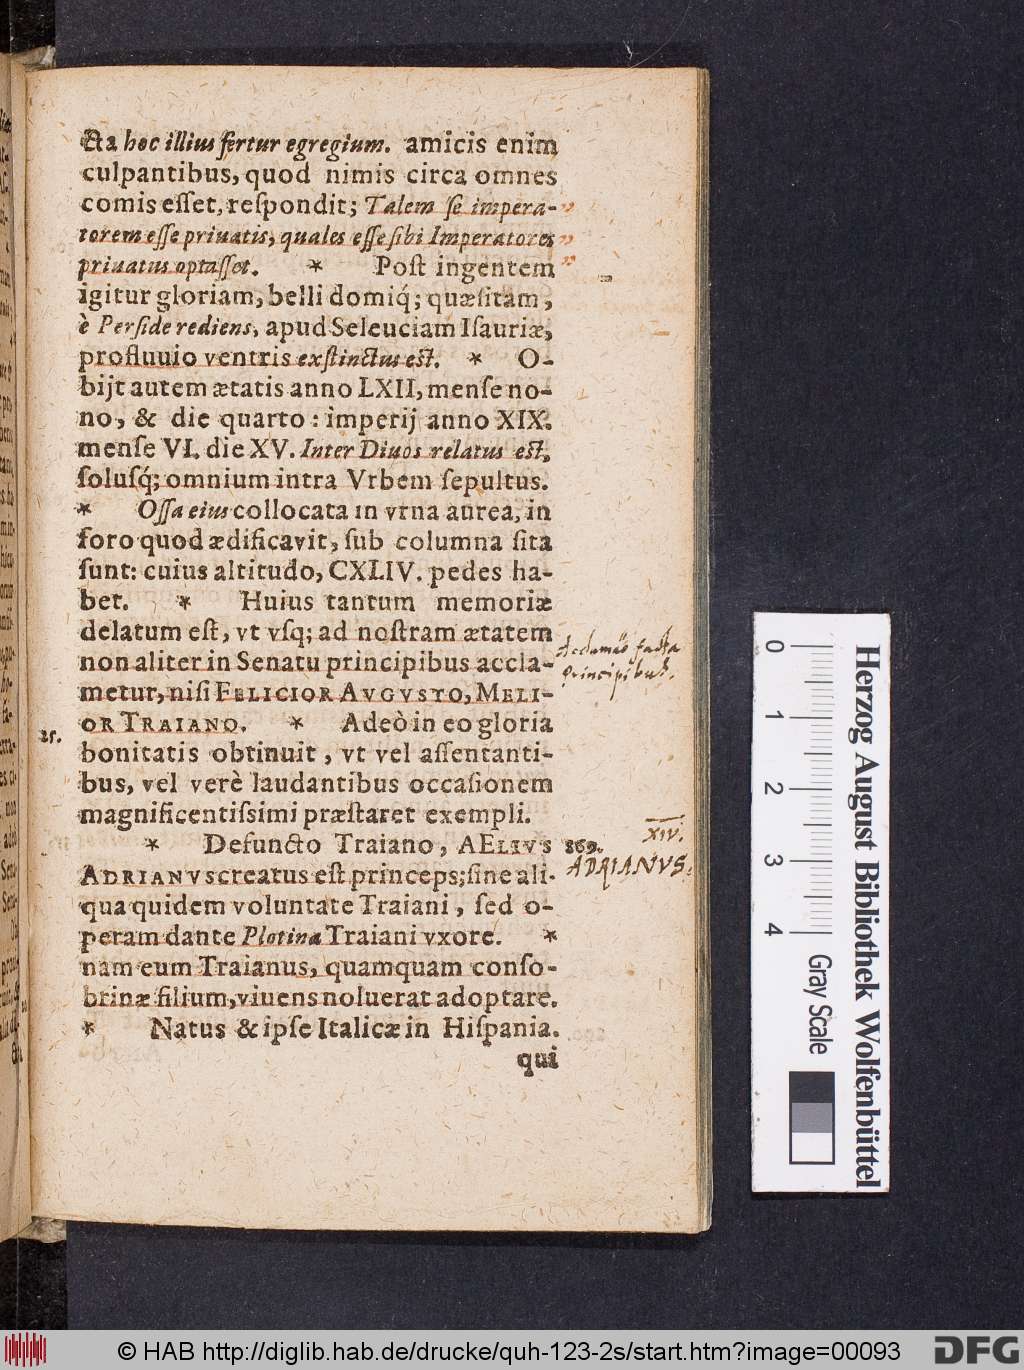 cta hoc illius fertur egregium. amicis enim
culpantibus, quod nimis circa omnes
comis eſſet, reſpondit; Talem ſe impera-"
torem eſſe priuatis, quales eſſe ſibi Imperatores"
priuatus optaſſet. * Poſt ingentem
igitur gloriam, belli domiq́; quæſitam,
è Perſide rediens, apud Seleuciam Iſauriæ,
profluuio ventris exſtinctus eſt. * O-
bijt autem ætatis anno LXII, menſe no-
no, & die quarto: imperij anno XIX.
menſe VI. die XV. Inter Diuos relatus eſt,
ſoluſq́; omnium intra Vrbem ſepultus.
* Oſſa eius collocata in vrna aurea, in
foro quod ædificavit, ſub columna ſita
ſunt: cuius altitudo, CXLIV. pedes ha-
bet. * Huius tantum memoriæ
delatum eſt, vt vſq; ad noſtram ætatem
non aliter in Senatu principibus accla-
metur, niſi FELICIOR AVGVSTO, MELI-
OR TRAIANO. * Adeò in eo gloria
25.
bonitatis obtinuit, vt vel aſſentanti-
bus, vel verè laudantibus occaſionem
magnificentiſsimi præſtaret exempli.
* Defuncto Traiano, AELIVS
ADRIANVS creatus eſt princeps; ſine ali-
qua quidem voluntate Traiani, ſed o-
peram dante Plotina Traiani vxore. *
nam eum Traianus, quamquam conſo-
brinæ filium, viuens noluerat adoptare.
* Natus & ipſe Italicæ in Hiſpania.
qui
facta
principibus.
XIV.
869.
ADRIANVS.
0 1 2 3 4
Gray Scale
Herzog August Bibliothek Wolfenbüttel
© HAB http://diglib.hab.de/drucke/quh-123-2s/start.htm?image=00093
DFG